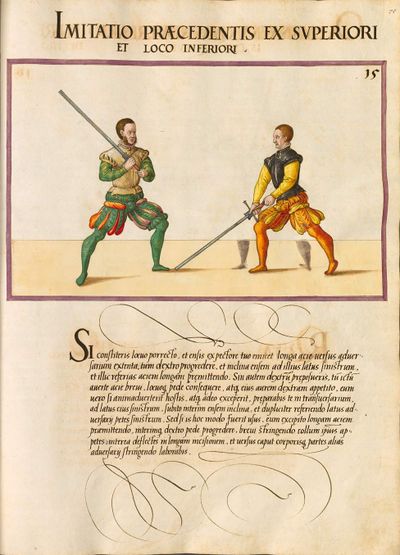 IMITATIO PRÆCEDENTIS EX SVPERIORI
ET LOCO INFERIORI.
15
Si constiteris læuo porrecto, et ensis ex pectore tuo emineat longa acie versus aduer-
sarium extenta, tum dextro progredere, et inclina ensem ad illius latus sinistrum,
et illic referias aciem longam premittendo. Sin autem dextrum preposueris, tum ictum
auerte acie breui, læuoq pede consequere, atq eius aurem dextram appetito, cum
uero si animaduerterit hostis, atq adeo exceperit, preparabis te in transuersarium,
ad latus eius sinistrum, subito interim ensem inclina, et dupliciter referendo latus ad-
uersarij petes sinistrum. Sed si is hoc modo fuerit usus, eum excepto longam aciem
præmittendo, interimq dextro pede progredere, breui stringendo collum ipsius ap-
petes: interea deflectes in longam incisionem, et versus caput corporisq partes alias
aduersarij stringendo laborabis.